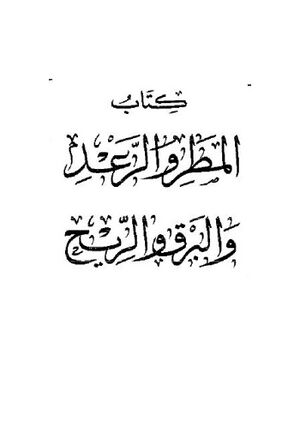 كِتَابُ
المَطَرِ وَالرَّعْدِ
وَالبَرْقِ وَالرِّيحِ